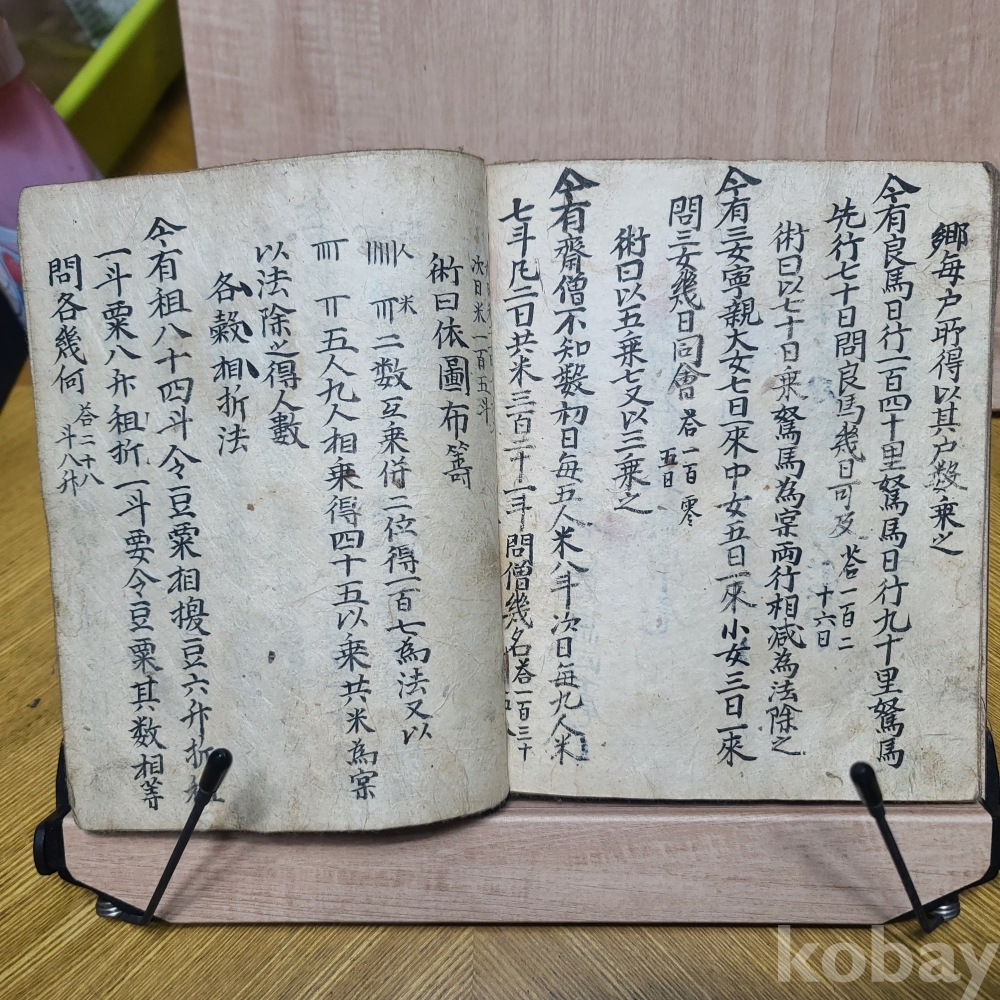 鄉每户所得以其户数乘之
今有良馬日行一百四十里駑馬日行九十里駑馬
先行七十日問良馬幾日可及 答一百二
十六日
術曰以七十日乘駑馬為寔両行相减為法除之
今有三女寧親大女七日一來中女五日一來小女三日一來
問三女幾日同會 答一百零
五日
術曰以五乘七又以三乘之
今有齋僧不知数初日每五人米八斗次日每九人米
七斗凡二日共米三百二十一斗問僧幾名 答一百三十
次日米一百五斗
術曰依圖布筭
人 米
𝍤 𝍧 二数互乘併二位得一百七為法又以
𝍨 𝍦 五人九人相乘得四十五以乘共米為寔
以法除之得人數
各穀相折法
今有租八十四斗令豆粟相換豆六升折租
一斗粟八升租折一斗要令豆粟其数相等
問各幾何 答二十八
斗八升
kobay